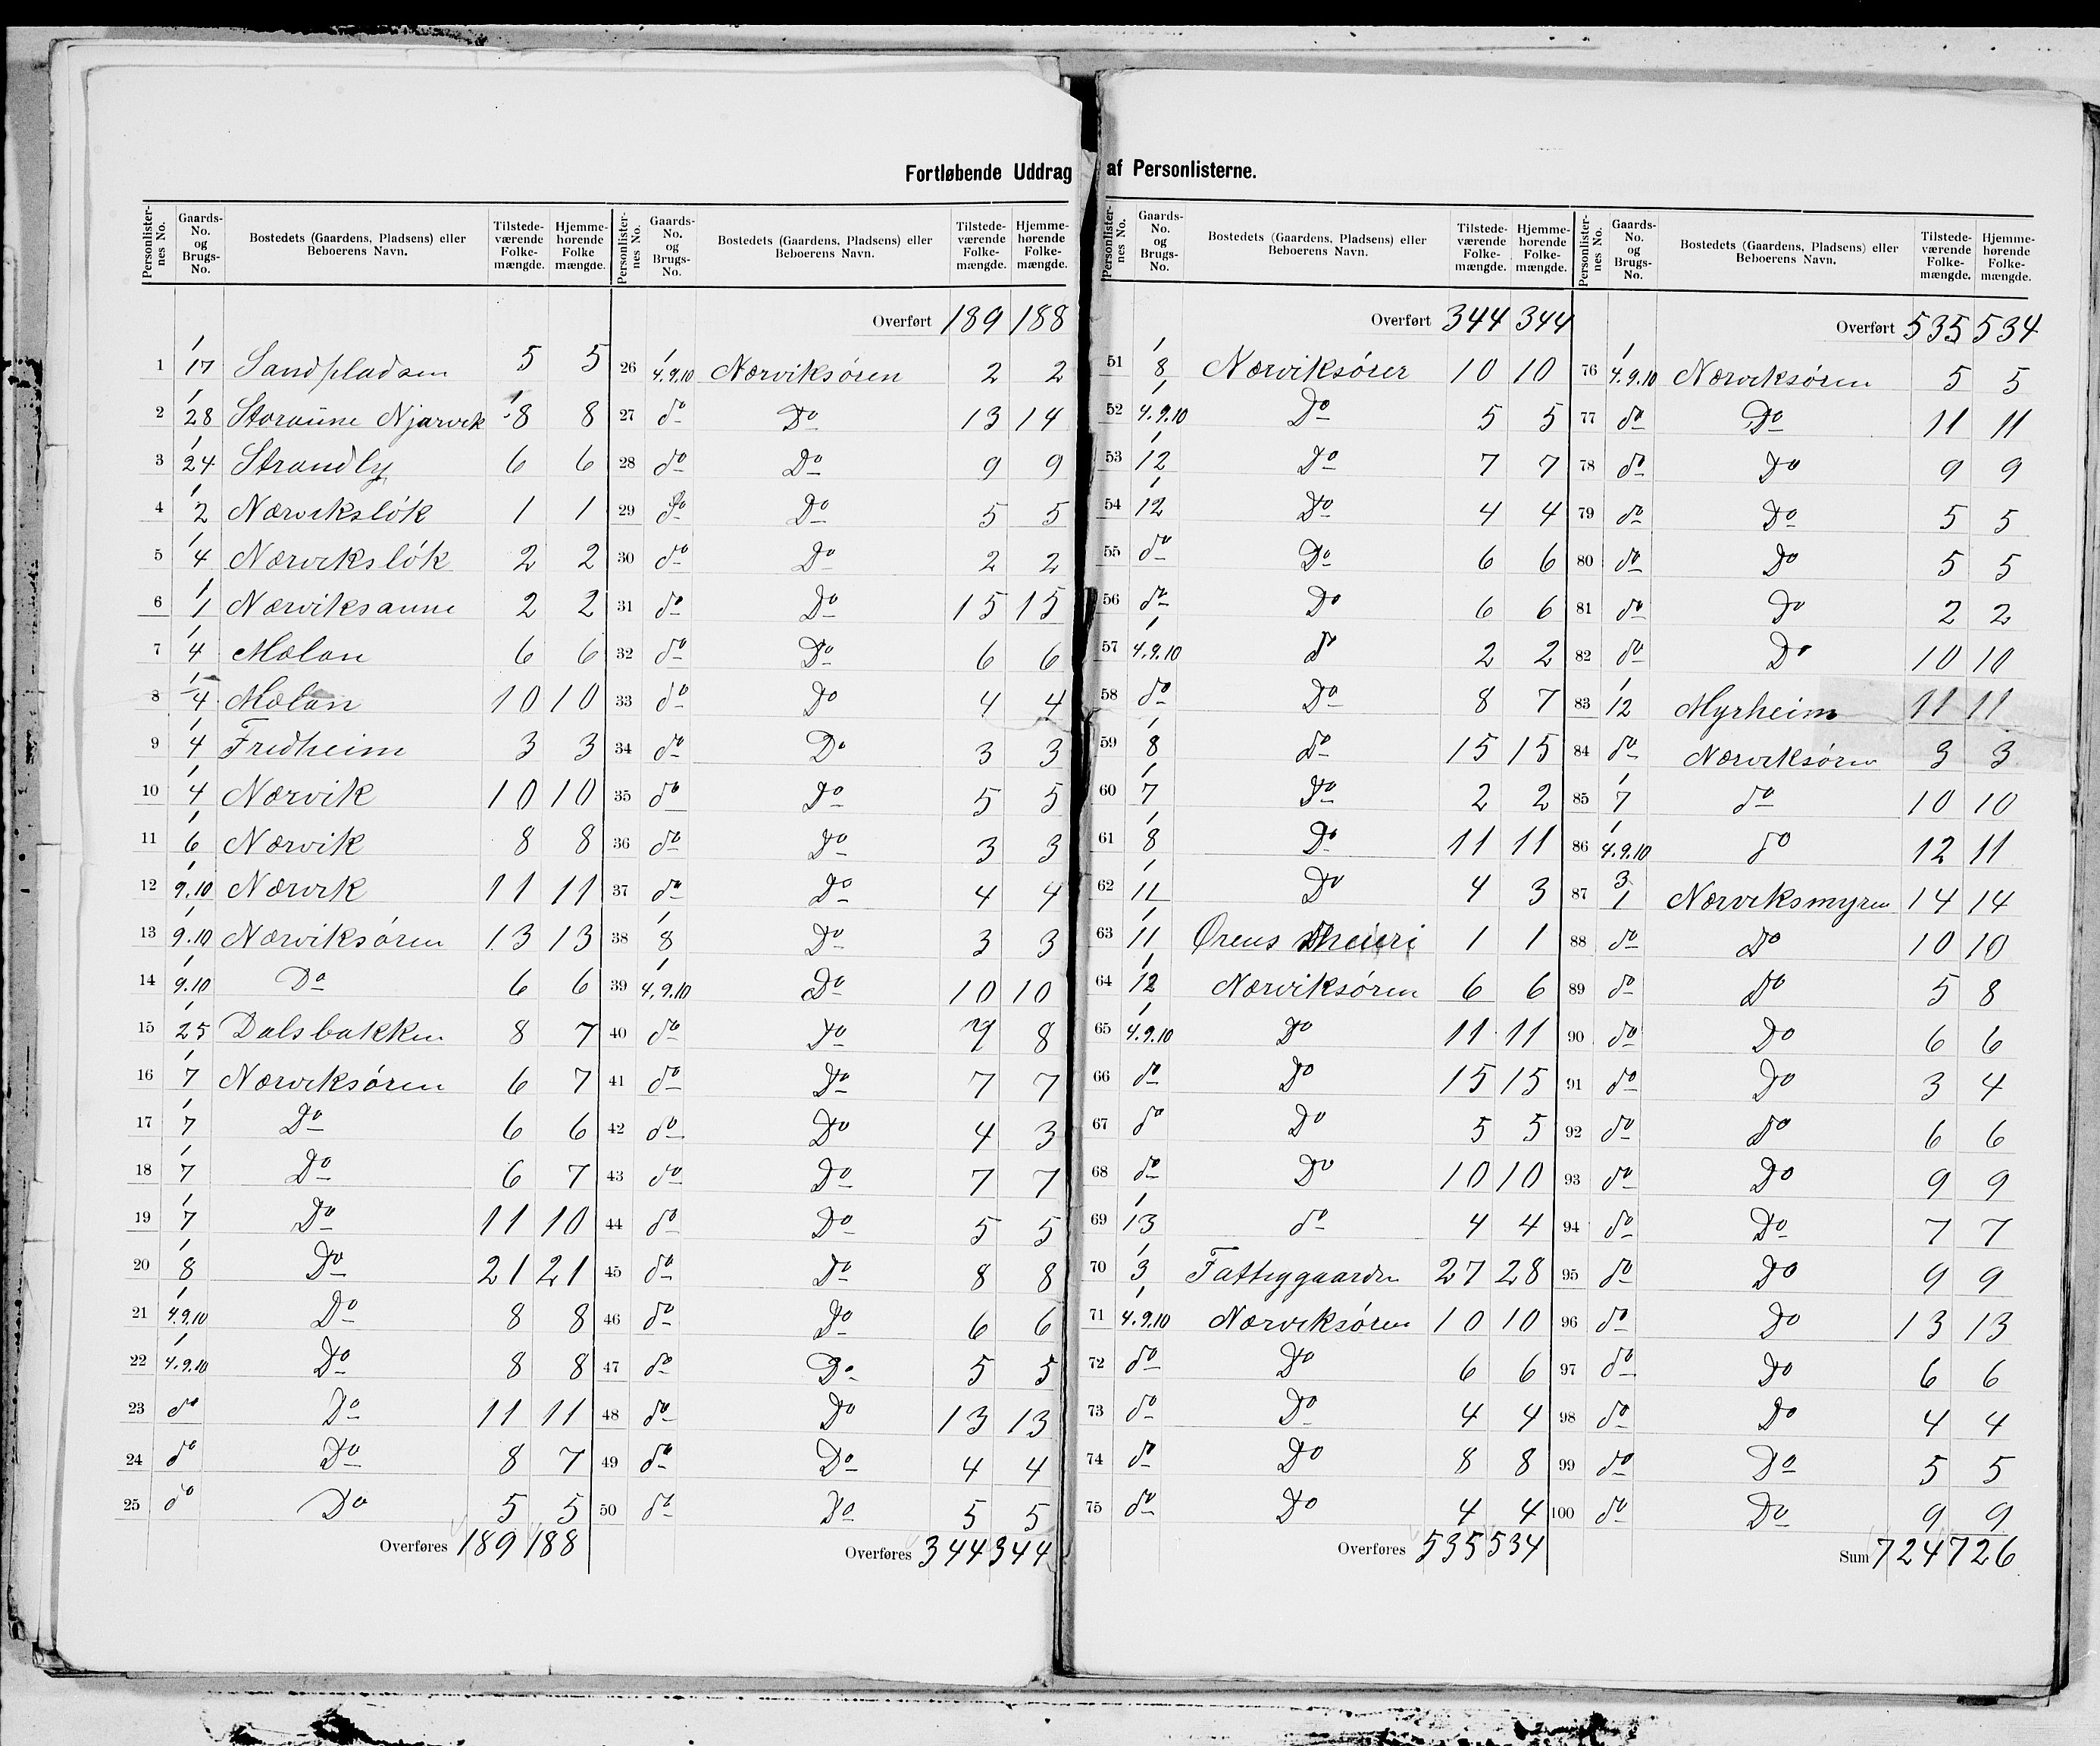 Fortløbende Uddrag af Personlisterne.
Personlister-nes No. Gaards-No. og Brugs-No. Bostedets (Gaardens, Pladsens) eller Beboerens Navn. Tilstede-værende Folke-mængde. Hjemme-hørende Folke mængde.
1 1/17 Sandpladsen 5 5
2 1/28 Storaune Njarvik 8 8
3 1/24 Strandly 6 6
4 1/2 Nærvikslök 1 1
5 1/4 Nærvikslök 2 2
6 1/1 Nærviksaune 2 2
7 1/4 Mælan 6 6
8 1/4 Mælan 10 10
9 1/4 Fredheim 3 3
10 1/4 Nærvik 10 10
11 1/6 Nærvik 8 8
12 1/9.10 Nærvik 11 11
13 1/9.10 Nærviksören 13 13
14 1/9.10 Do 6 6
15 1/25 Dalsbakken 8 7
16 1/7 Nærviksören 6 7
17 1/7 Do 6 6
18 1/7 Do 6 7
19 1/7 Do 11 10
20 1/8 Do 21 21
21 1/4.9.10 Do 8 8
22 1/4.9.10 Do 8 8
23 do Do 11 11
24 do Do 8 7
25 do Do 5 5
Overføres 189 188
Personlister-nes No. Gaards-No. og Brugs-No. Bostedets (Gaardens, Pladsens) eller Beboerens Navn. Tilstede-værende Folke-mængde. Hjemme-hørende Folke-mængde.
Overført 189 188
26 1/4.9.10 Nærviksören 2 2
27 do Do 13 14
28 do Do 9 9
29 do Do 5 5
30 do Do 2 2
31 do Do 15 15
32 do Do 6 6
33 do Do 4 4
34 do Do 3 3
35 do Do 5 5
36 do Do 3 3
37 do Do 4 4
38 1/8 Do 3 3
39 1/4.9.10 Do 10 10
40 do Do 7 8
41 do Do 7 7
42 do Do 4 3
43 do Do 7 7
44 do Do 5 5
45 do Do 8 8
46 do Do 6 6
47 do Do 5 5
48 do Do 13 13
49 do Do 4 4
50 do Do 5 5
Overføres 344 344
Personlister-nes No. Gaards-No. og Brugs-No. Bostedets (Gaardens, Pladsens) eller Beboerens Navn. Tilstede-værende Folke-mængde. Hjemme-hørende Folke-mængde.
Overført 344 344
51 1/8 Nærviksörer 10 10
52 1/4.9.10 Do 5 5
53 1/12 Do 7 7
54 1/12 Do 4 4
55 do Do 6 6
56 do Do 6 6
57 1/4.9.10 do 2 2
58 do Do 8 7
59 1/8 do 15 15
60 1/7 Do 2 2
61 1/8 Do 11 11
62 1/11 Do 4 3
63 1/11 Ørens 1 1
64 1/12 Nærviksören 6 6
65 1/4.9.10 Do 11 11
66 do Do 15 15
67 do Do 5 5
68 do Do 10 10
69 1/13 do 4 4
70 1/3 Fattiggaarden 27 28
71 1/4.9.10 Nærviksören 10 10
72 do Do 6 6
73 do Do 4 4
74 do Do 8 8
75 do Do 4 4
Overføres 535 534
Personlister-nes No. Gaards-No. og Brugs-No. Bostedets (Gaardens, Pladsens) eller Beboerens Navn. Tilstede-værende Folke-mængde. Hjemme-hørende Folke-mængde.
Overført 535 534
76 1/4.9.10 Nærviksören 5 5
77 do Do 11 11
78 do Do 9 9
79 do Do 5 5
80 do Do 5 5
81 do Do 2 2
82 do Do 10 10
83 1/12 Myrheim 11 11
84 do Nærviksören 3 3
85 1/7 do 10 10
86 1/4.9.10 do 12 11
87 3/1 Nærviksmyren 14 14
88 do Do 10 10
89 do Do 5 8
90 do Do 6 6
91 do Do 3 4
92 do do 6 6
93 do Do 9 9
94 do Do 7 7
95 do Do 9 9
96 do Do 13 13
97 do Do 6 6
98 do Do 4 4
99 do Do 5 5
100 do Do 9 9
Sum 724 726